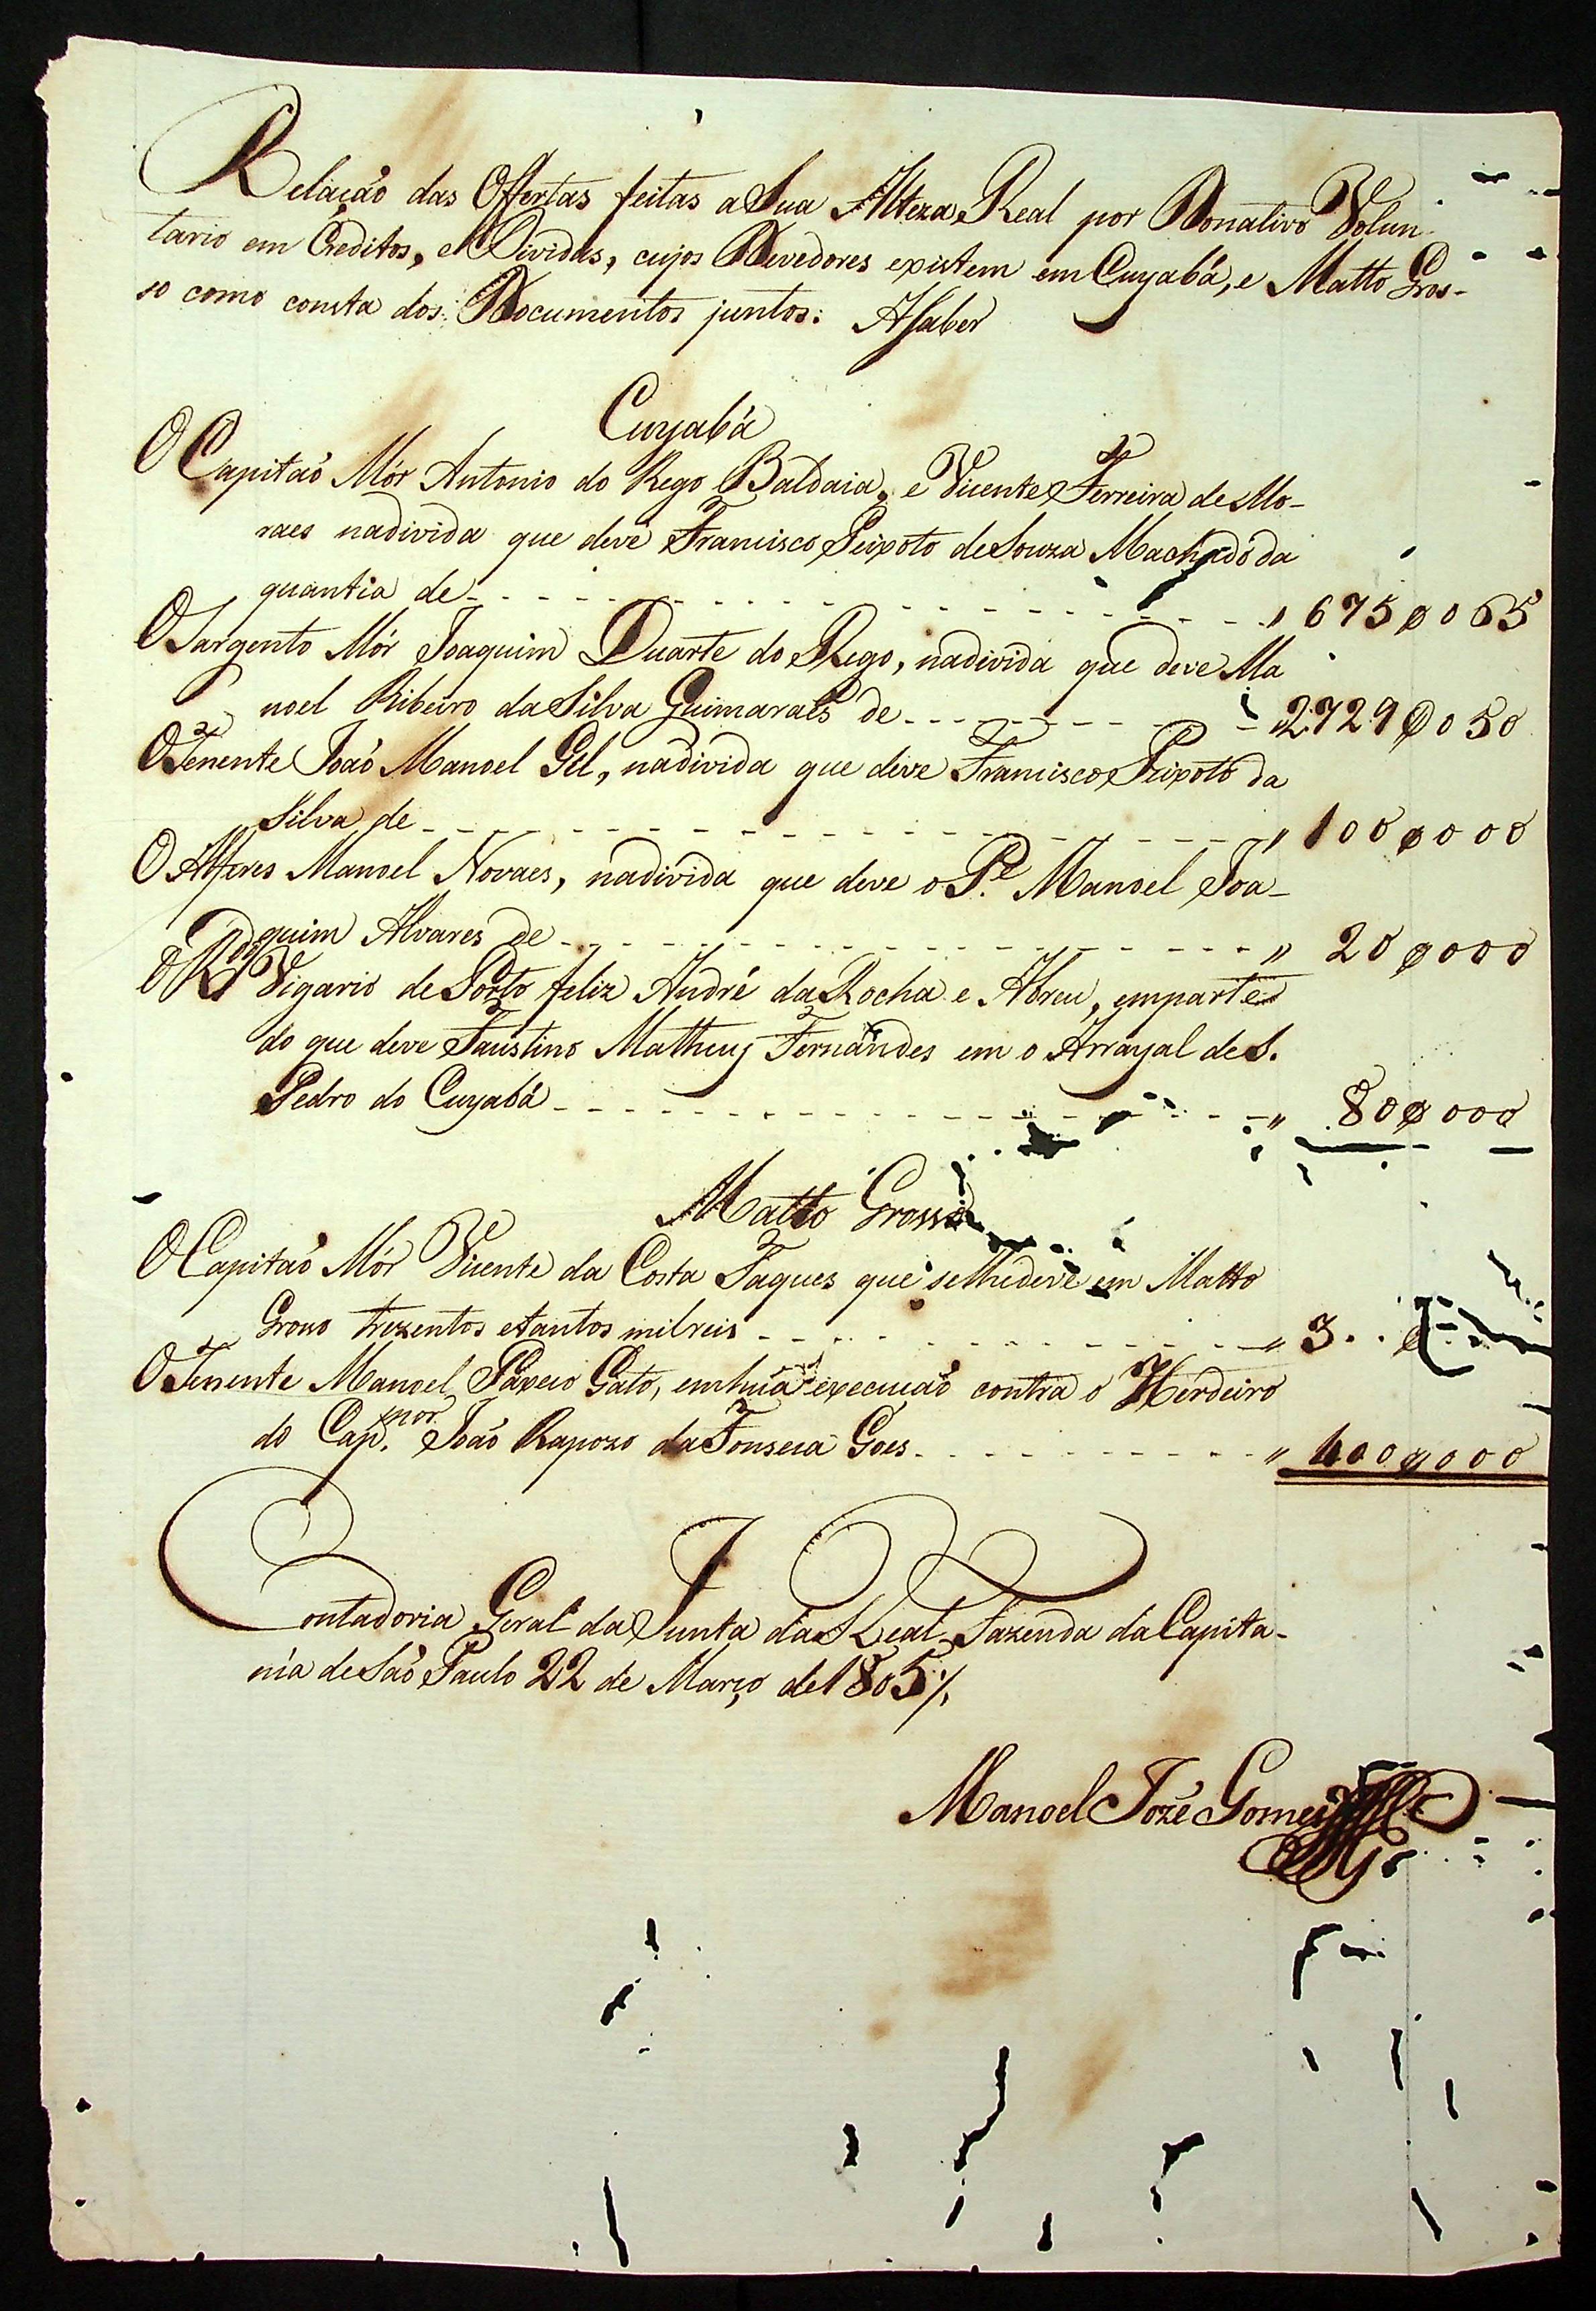 Relação das Offertas feitas a Sua Alteza Real por Donativo Volun-
tario em Creditos, e Dividas, cujos Devedores existem em Cuyabá, e Matto Gros-
so como consta dos Documentos juntos: A Saber
Cuyabá
O Capitaó Mór Antonio do Rego Baldaia, e Vicente Ferreira de Mo-
raes nadivida que deve Francisco Peixoto de Souza Machado da
quantia de - - - " 675$065
O Sargento Mór Joaquim Duarte do Rego, nadivida que deve Ma
noel Ribeiro da Silva Guimaraês de - - - " 2729$050
O Tenente Joaó Manoel Gil, nadivida que deve Francisco Peixoto da
Silva de - - - " 100$000
O Alferes Manoel Novaes, nadivida que deve o Pe. Manoel Joa-
quim Alvares de - - - " 20$000
O Rdo Vigario de Porto feliz André da Rocha e Abreu, emparte
do que deve Faustino Matheus Fernandes em o Arrayal de S.
Pedro do Cuyabá - - - " 80$000
Matto Grosso
O Capitaó Mór Vicente da Costa Taques que selhedeve em Matto
Grosso trezentos etantos milreis - - - " 3..$
O Tenente Manoel Pacheco Gato, emhúa execuçaó contra o Herdeiro
do Cap. mor Joaó Raposo da Fonseca Goes - - - " 400$000
Contadoria Geral da Junta da Real Fazenda da Capita-
nia de Saó Paulo 22 de Março de 1805 ./.
Manoel Jozé Gomes